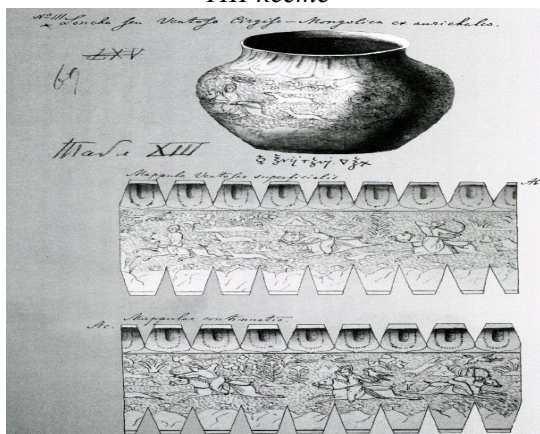 XIII кесте
№ III
Concha seu Ventosa Cirgiso-Mongolica ex aurichalco.
LXV
69
Табл XIII
Mappula Ventosae superficialis
Ab.
Ac.
Mappulae continuatio.